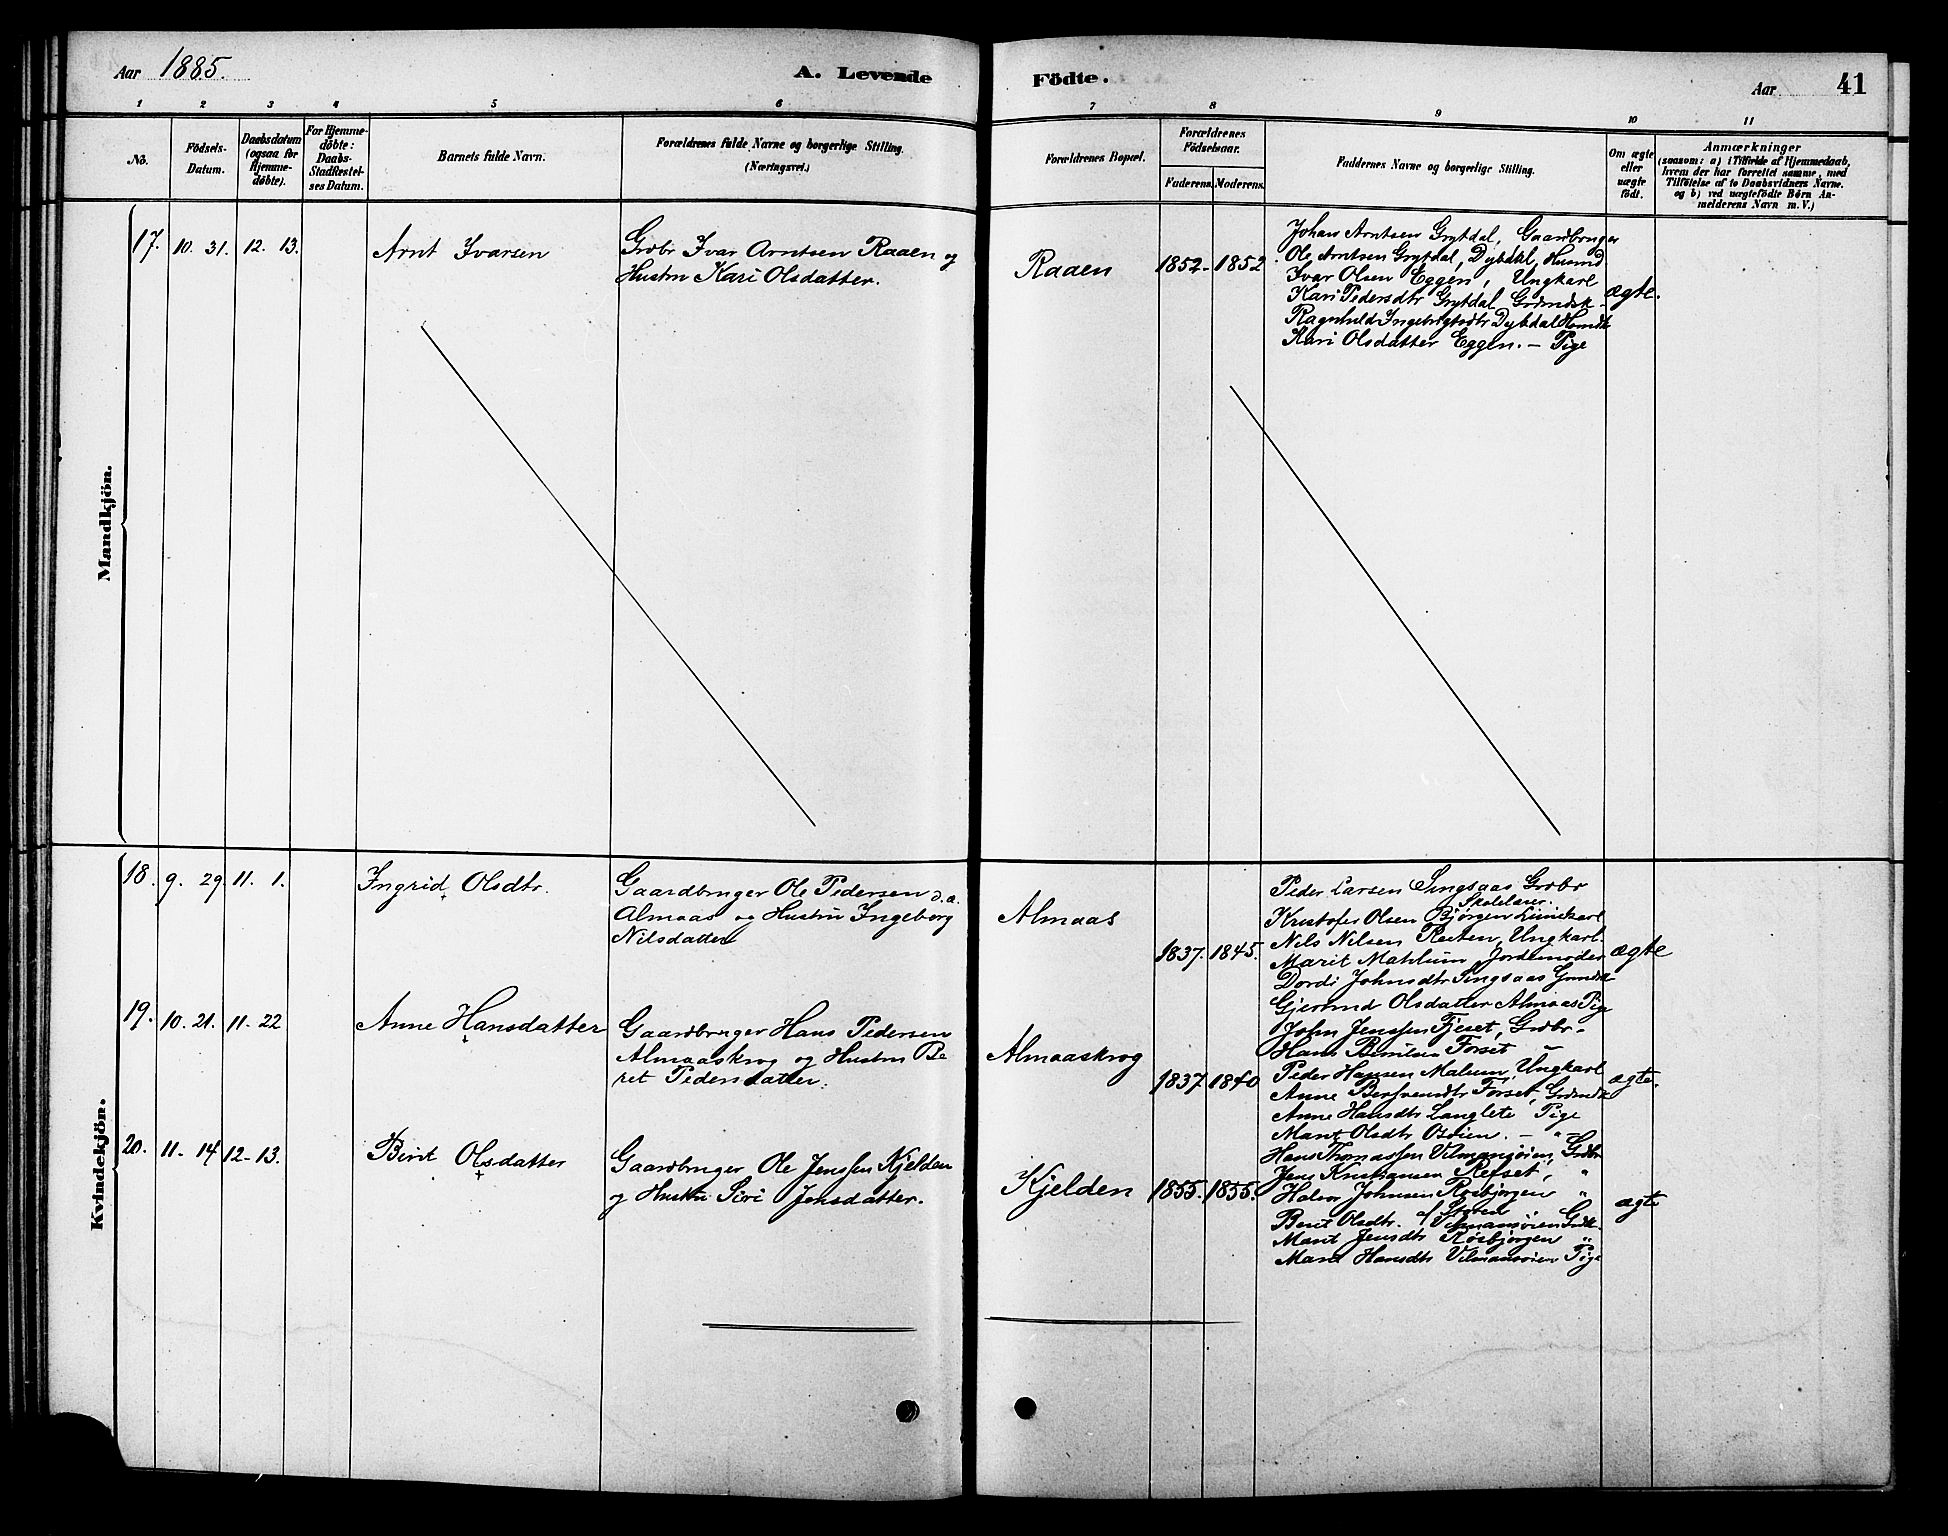 Aar 1885.
A. Levende
Födte.
Aar
41
1 2 3 4 5 6 7 8 9 10 11
No.
Födsels-
Datum.
Daabsdatum
(ogsaa for
Hjemme-
döbte).
For Hjemme-
döbte:
Daabs-
Stadfæstel-
ses Datum.
Barnets fulde Navn.
Forældrenes fulde Navne og borgerlige Stilling.
(Næringsvei.)
Forældrenes Bopæl.
Forældrenes
Födselsaar.
Faderens. Moderens.
Faddernes Navne og borgerlige Stilling.
Om ægte
eller
uægte
födt.
Anmærkninger
(saasom: a) i Tilfælde af Hjemmedaab,
hvem der har forrettet samme, med
Tilföielse af to Daabsvidners Navne.
og b) ved uægtefödte Børn An-
melderens Navn m. V.)
Mandkjön.
17. 10. 31. 12. 13.
Arnt Ivarsen
Grbr Ivar Arntsen Raaen og
Hustru Kari Olsdatter.
Raaen
1852. 1852
Johan Arntsen Grytdal, Gaardbruger
Ole Arntsen Grytdal, Dybdal, Husmd.
Ivar Olsen Eggen, Ungkarl
Kari Pedersdtr Grytdal, Grdmdsk
Ragnhild Ingebrigtsdtr Dybdal
Kari Olsdatter Eggen. – Pige
ægte.
Kvindekjön.
18. 9. 29. 11. 1.
Ingrid Olsdtr.
Gaardbruger Ole Pedersen
Almaas og Hustru Ingeborg
Nilsdatter
Almaas
1837. 1845.
Peder Larsen Singsaas Grbr
Skolelærer.
Kristofer Olsen Bjørgen
Nils Nilsen Reiten, Ungkarl.
Marit Mahlum Jordemoder
Dordi Johnsdtr Singsaas
Gjertrud Olsdatter Almaas Pige
ægte
19. 10. 21. 11. 22
Anne Hansdatter
Gaardbruger Hans Pedersen
Almaaskrog og Hustru Be
ret Pedersdatter.
Almaaskrog
1837 1840
John Jenssen Fjeset, Grbr.
Hans Forset –
Peder Hansen Malum, Ungkarl
Anne Forset, Grdmdsk
Anne Hansdtr Langlete Pige
Marit Olsdtr – " –
ægte.
20. 11. 14 12. 13.
Berit Olsdatter
Gaardbruger Ole Jenssen Kjelden
og Hustru Siri Jensdatter.
Kjelden
1855. 1855.
Hans Thomassen Vilmansøien, Grdbr
Jens Kristiansen Refset, "
Halvor Johnsen Rosbjørgen "
Støren
Berit Olsdtr. Vilmansøien
Marit Jensdtr Rosbjørgen "
Marit Hansdtr Vilmansøien Pige
ægte